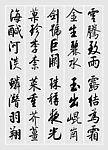 雲騰致雨露結為霜
金生麗水玉出崑岡
劍號巨闕珠稱夜光
菓珍李柰菜重芥薑
海鹹河淡鱗潛羽翔